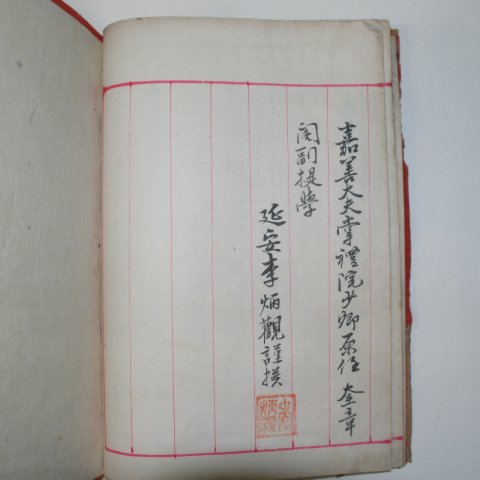 嘉善大夫掌禮院少卿原任 奎章
閣副提學
延安李炳觀謹撰